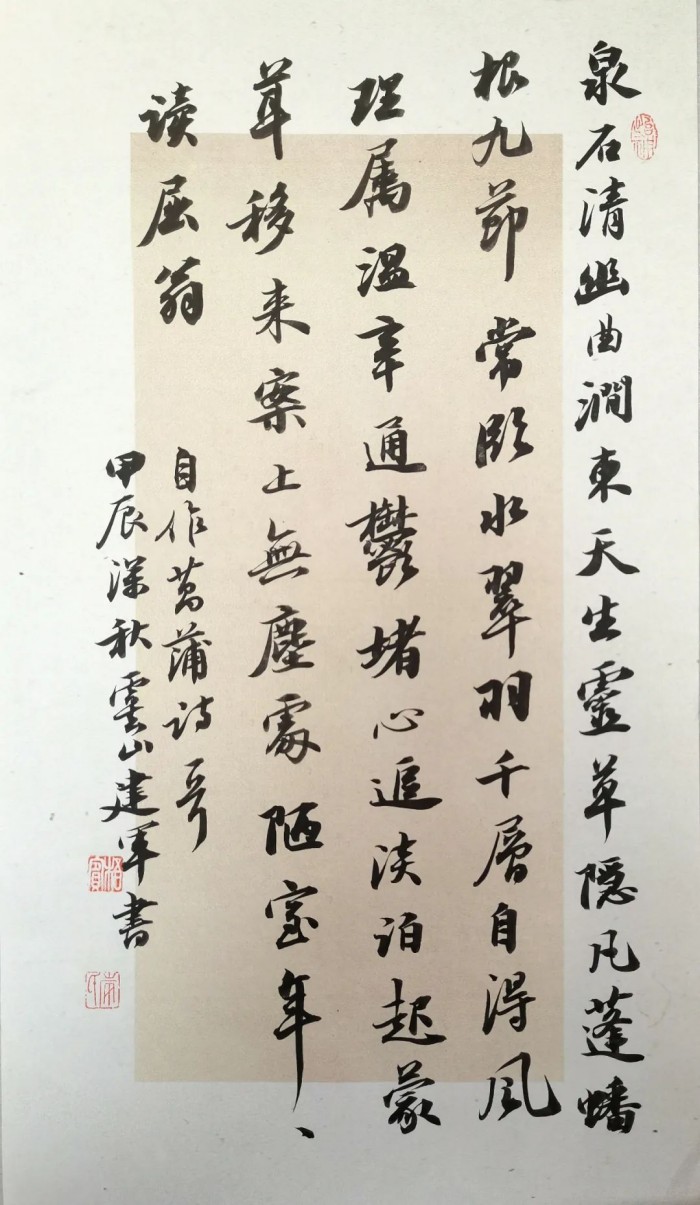 泉石清幽曲澗東天生靈草隱凡蓬蟠
根九節常臨水翠羽千層自得風
理属溫辛通鬱堵心追淡泊起蒙
茸移来案上無塵處陋室年、
读屈翁
自作菖蒲诗
甲辰深秋雲山建军書